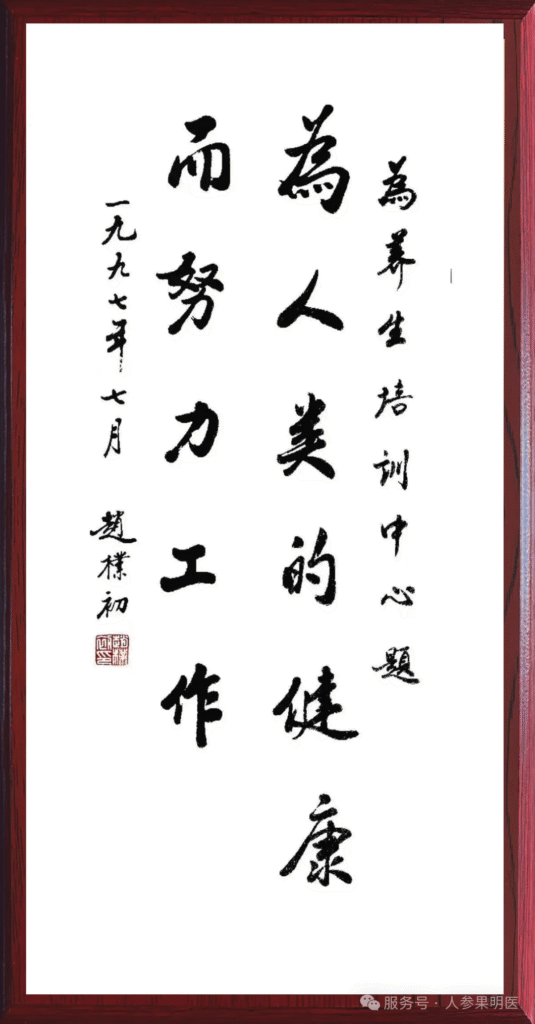 為养生培训中心題
為人类的健康
而努力工作
一九九七年七月 趙樸初
服务号·人参果明医